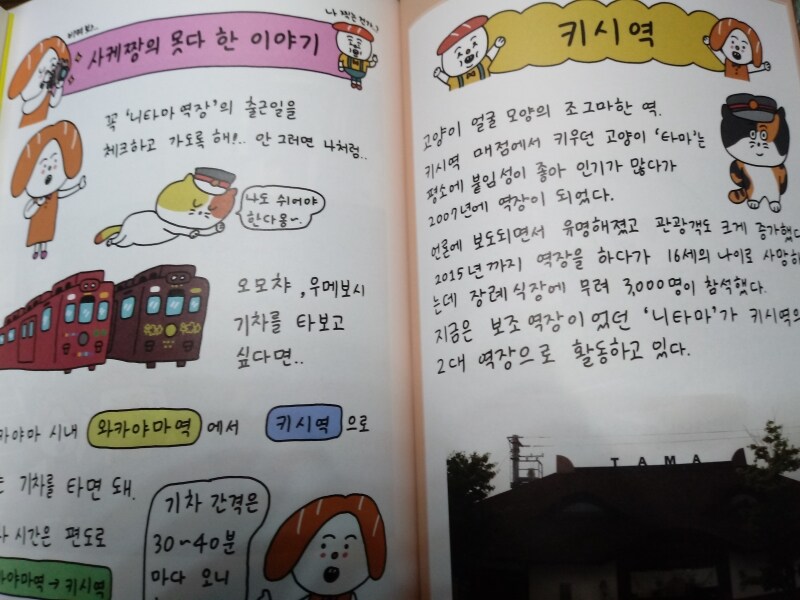 비켜봐..
나 찍은 건가..?
사케짱의 못다 한 이야기
꼭 '니타마 역장'의 출근일을
체크하고 가도록 해!.. 안 그러면 나처럼..
나도 쉬어야
한다옹~.
오모챠, 우메보시
기차를 타보고
싶다면..
카야마 시내 와카야마역 에서 키시역 으로
는 기차를 타면 돼.
시간은 편도로
카야마역→키시역
기차 간격은
30~40분
마다 오니
키시역
고양이 얼굴 모양의 조그마한 역.
키시역 매점에서 키우던 고양이 '타마'는
평소에 붙임성이 좋아 인기가 많다가
2007년에 역장이 되었다.
언론에 보도되면서 유명해졌고 관광객도 크게 증가했다
2015년까지 역장을 하다가 16세의 나이로 사망하
는데 장례식장에 무려 3,000명이 참석했다.
지금은 보조역장이었던 '니타마'가 키시역의
2대 역장으로 활동하고 있다.
TAMA